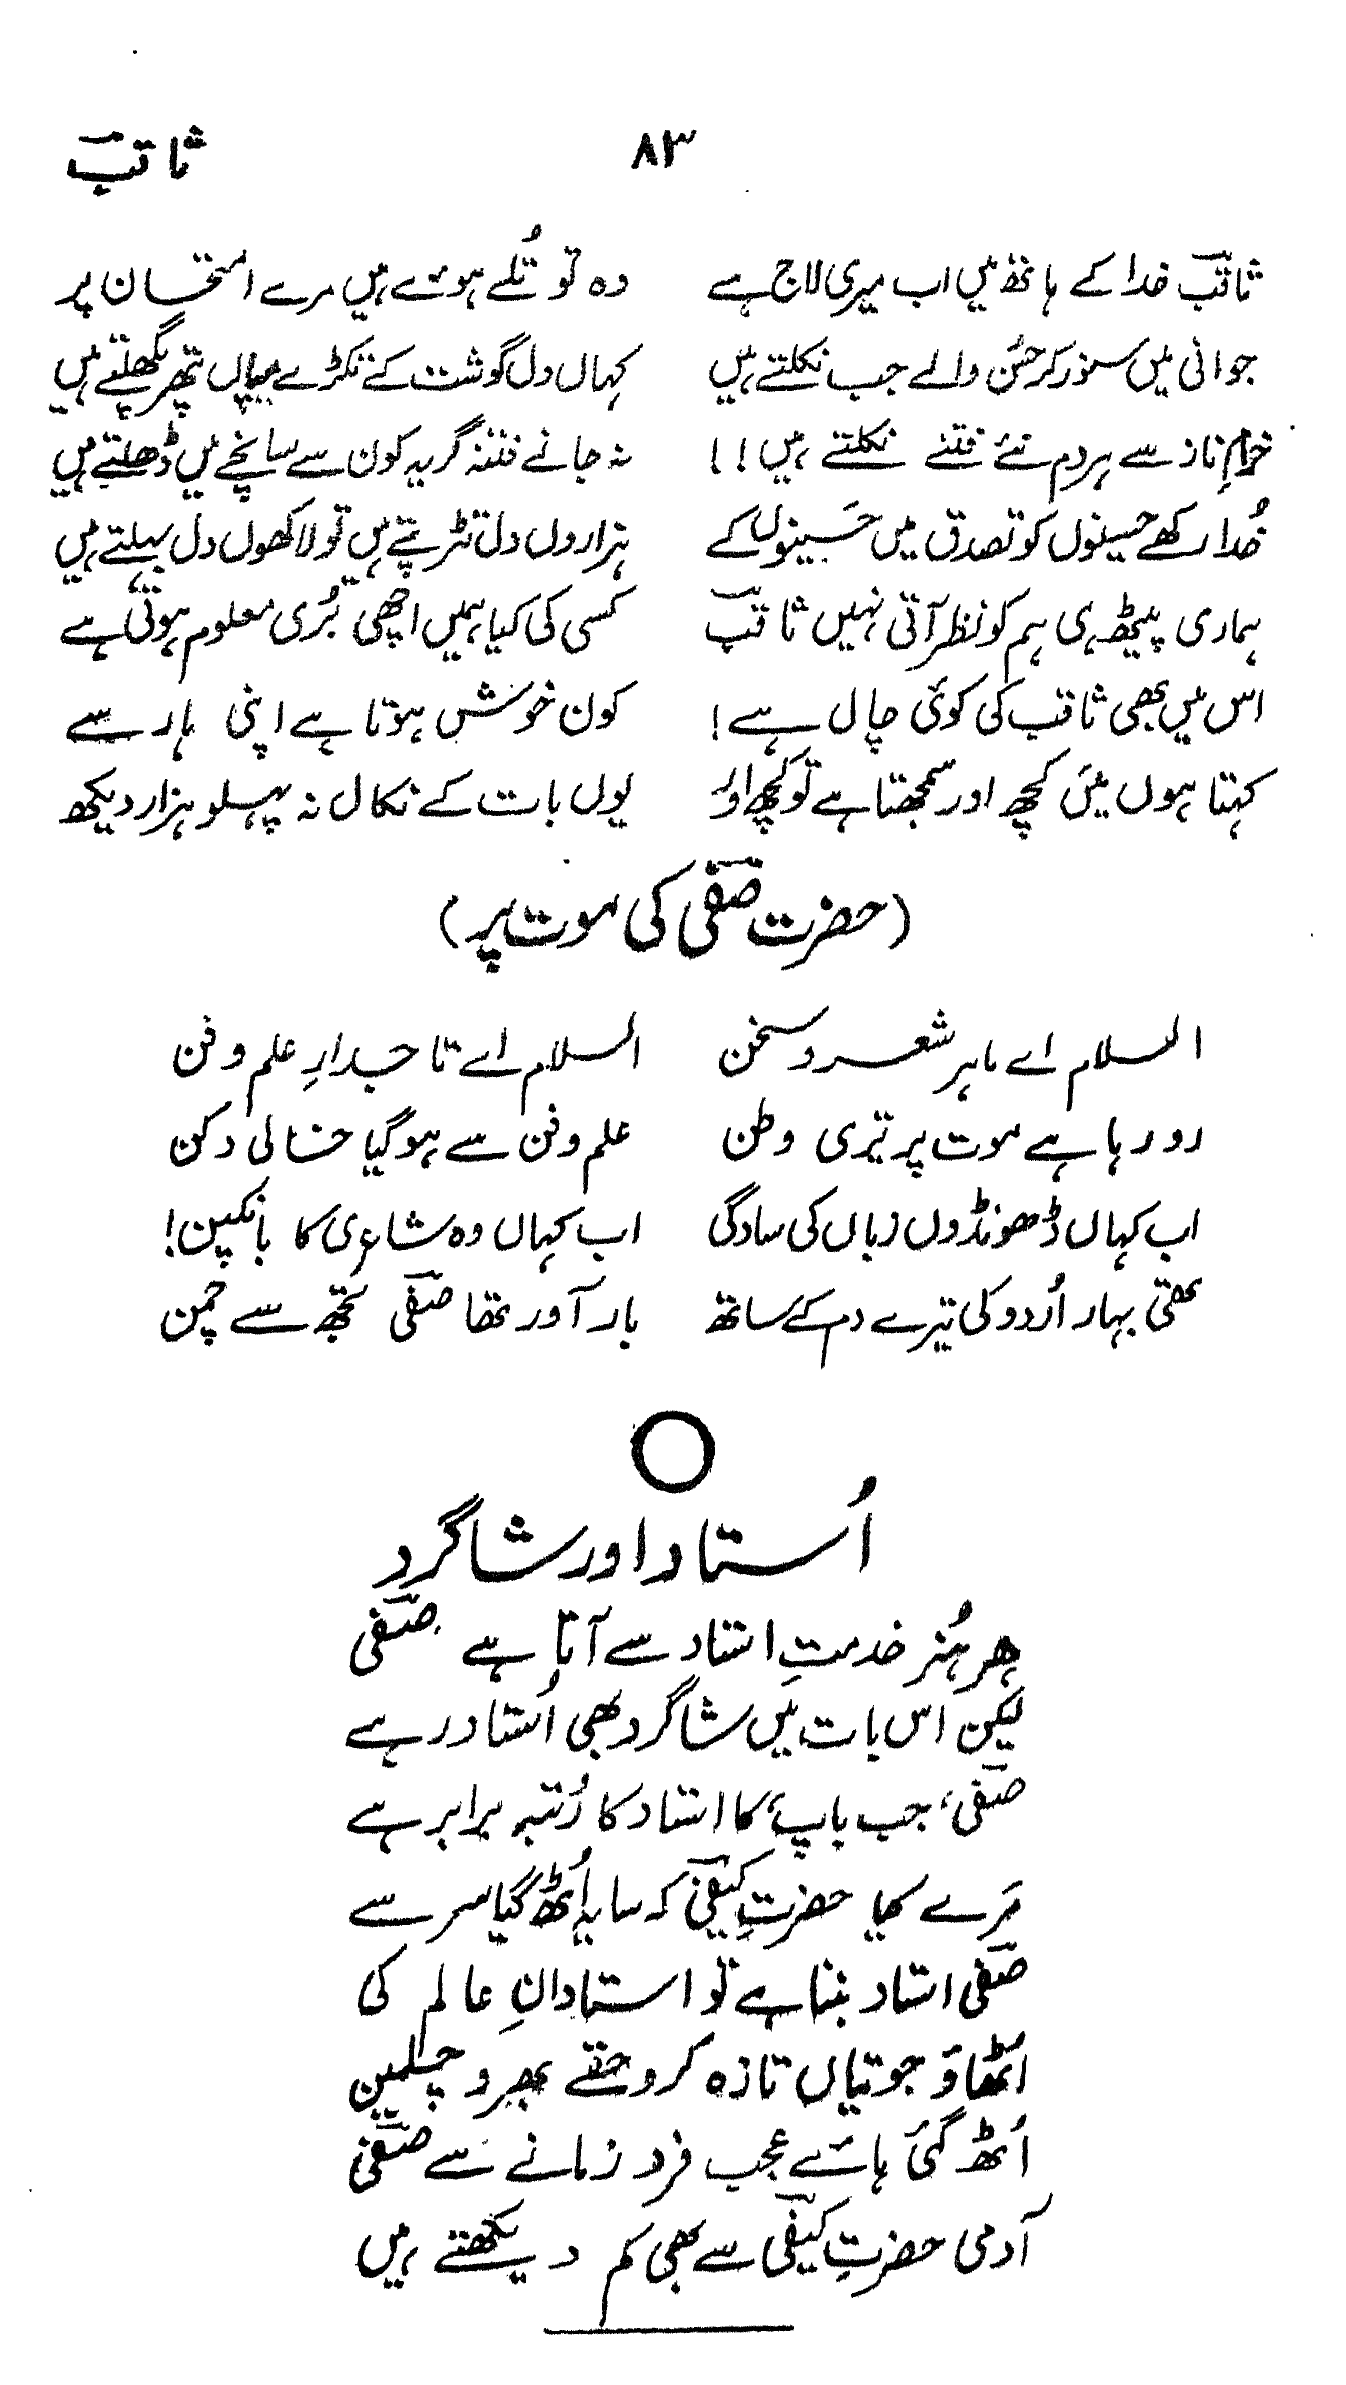 ۸۳ ثاقب
ثاقب خدا کے ہاتھ میں اب میری لاج ہے وہ تو تُلے ہوئے ہیں مرے امتحان پر
جوانی میں سنور کر حسُن والے جب نکلتے ہیں کہاں دل گوشت کے ٹکڑے میاں پتھر پگھلتے ہیں
خرامِ ناز سے ہر دم نئے فتنے نکلتے ہیں !! نہ جانے فتنہ گر یہ کون سے سانچے میں ڈھلتے ہیں
خُدا رکھے حسینوں کو تصدق میں حَسینوں کے ہزاروں دل تڑپتے ہیں تو لاکھوں دل بہلتے ہیں
ہماری پیٹھ ہی ہم کو نظر آتی نہیں ثاقب کسی کی کیا ہمیں اچھی بُری معلوم ہوتی ہے
اس میں بھی ثاقب کی کوئی چال ہے ! کون خوش ہوتا ہے اپنی ہار سے
کہتا ہوں میَں کچھ اور سمجھتا ہے تو کچھ اور یوں بات کے نکال نہ پہلو ہزار دیکھ
(حضرت صفی کی موت پر)
السلام اے ماہرِ شعر و سخن السلام اے تاجدارِ علم و فن
رو رہا ہے موت پر تیری وطن علم و فن سے ہوگیا خالی دکن
اب کہاں ڈھونڈوں زباں کی سادگی اب کہاں وہ شاعری کا بانکپن!
تھی بہار اُردو کی تیرے دم کے ساتھ بار آور تھا صفی تجھ سے چمن
اُستاد اور شاگرد
ہر ہُنر خدمتِ استاد سے آتا ہے صفی
لیکن اس بات میں شاگرد بھی اُستاد رہے
صفی، جب باپ کا استاد کا رُتبہ برابر ہے
مَرے کیا حضرتِ کیفی کہ سایہ اُٹھ گیا سر سے
صفی استاد بننا ہے تو استادانِ عالم کی
اُٹھاؤ جوتیاں تازہ کرو حقے بھرو چلمیں
اُٹھ گئی ہائے عجب فرد زمانے سے صفی
آدمی حضرتِ کیفی سے بھی کم دیکھتے ہیں